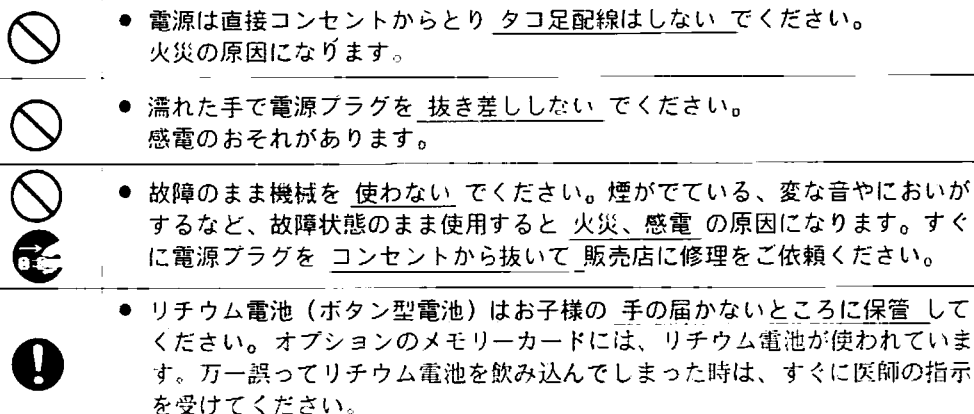 ● 電源は直接コンセントからとり タコ足配線はしない でください。
火災の原因になります。
● 濡れた手で電源プラグを 抜き差ししない でください。
感電のおそれがあります。
● 故障のまま機械を 使わない でください。煙がでている、変な音やにおいが
するなど、故障状態のまま使用すると 火災、感電 の原因になります。すぐ
に電源プラグを コンセントから抜いて 販売店に修理をご依頼ください。
● リチウム電池（ボタン型電池）はお子様の 手の届かないところに保管 して
ください。オプションのメモリーカードには、リチウム電池が使われていま
す。万一誤ってリチウム電池を飲み込んでしまった時は、すぐに医師の指示
を受けてください。